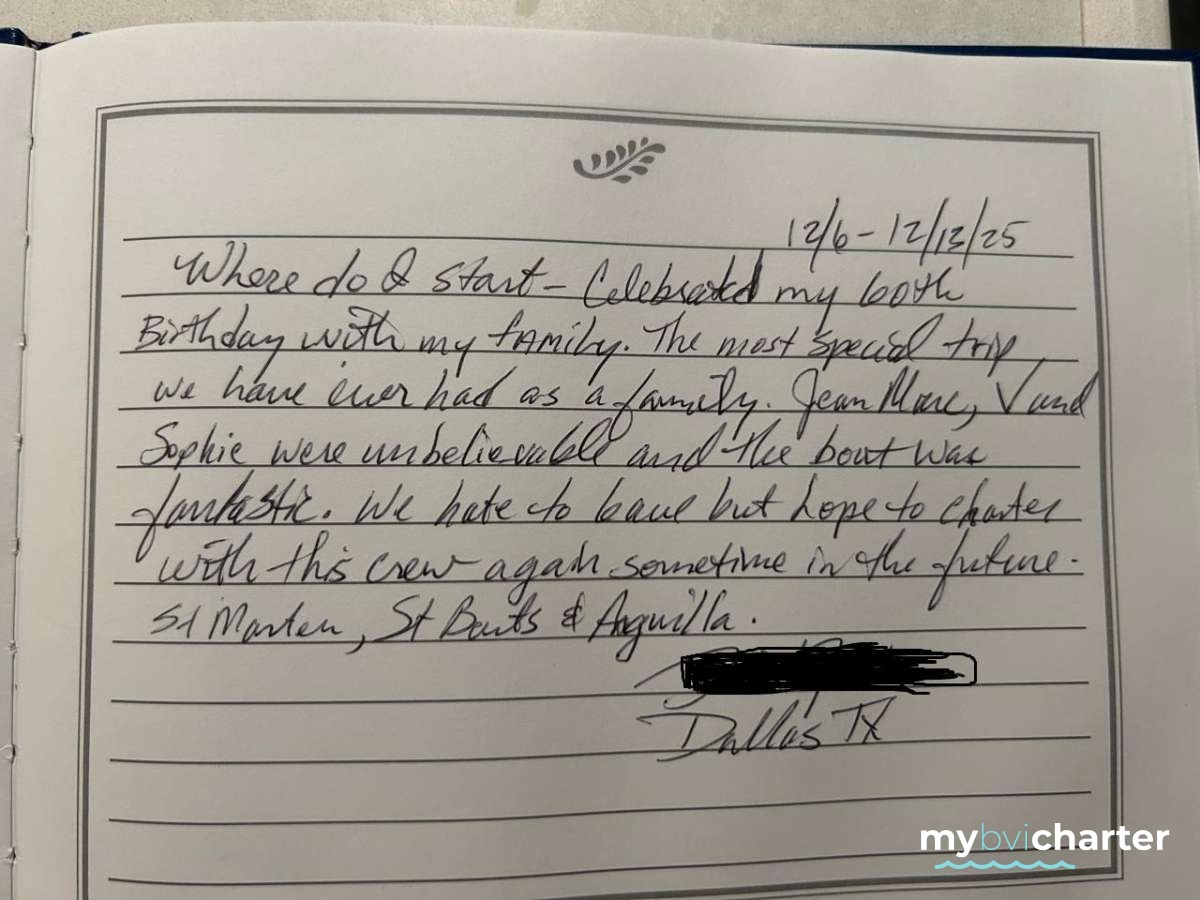 12/6 - 12/13/25
Where do I start - Celebrated my 60th
Birthday with my family. The most special trip
we have ever had as a family. Jean Marc, V and
Sophie were unbelievable and the boat was
fantastic. We hate to leave but hope to charter
with this crew again sometime in the future.
St Marten, St Barts & Anguilla.
Dallas TX
mybvicharter